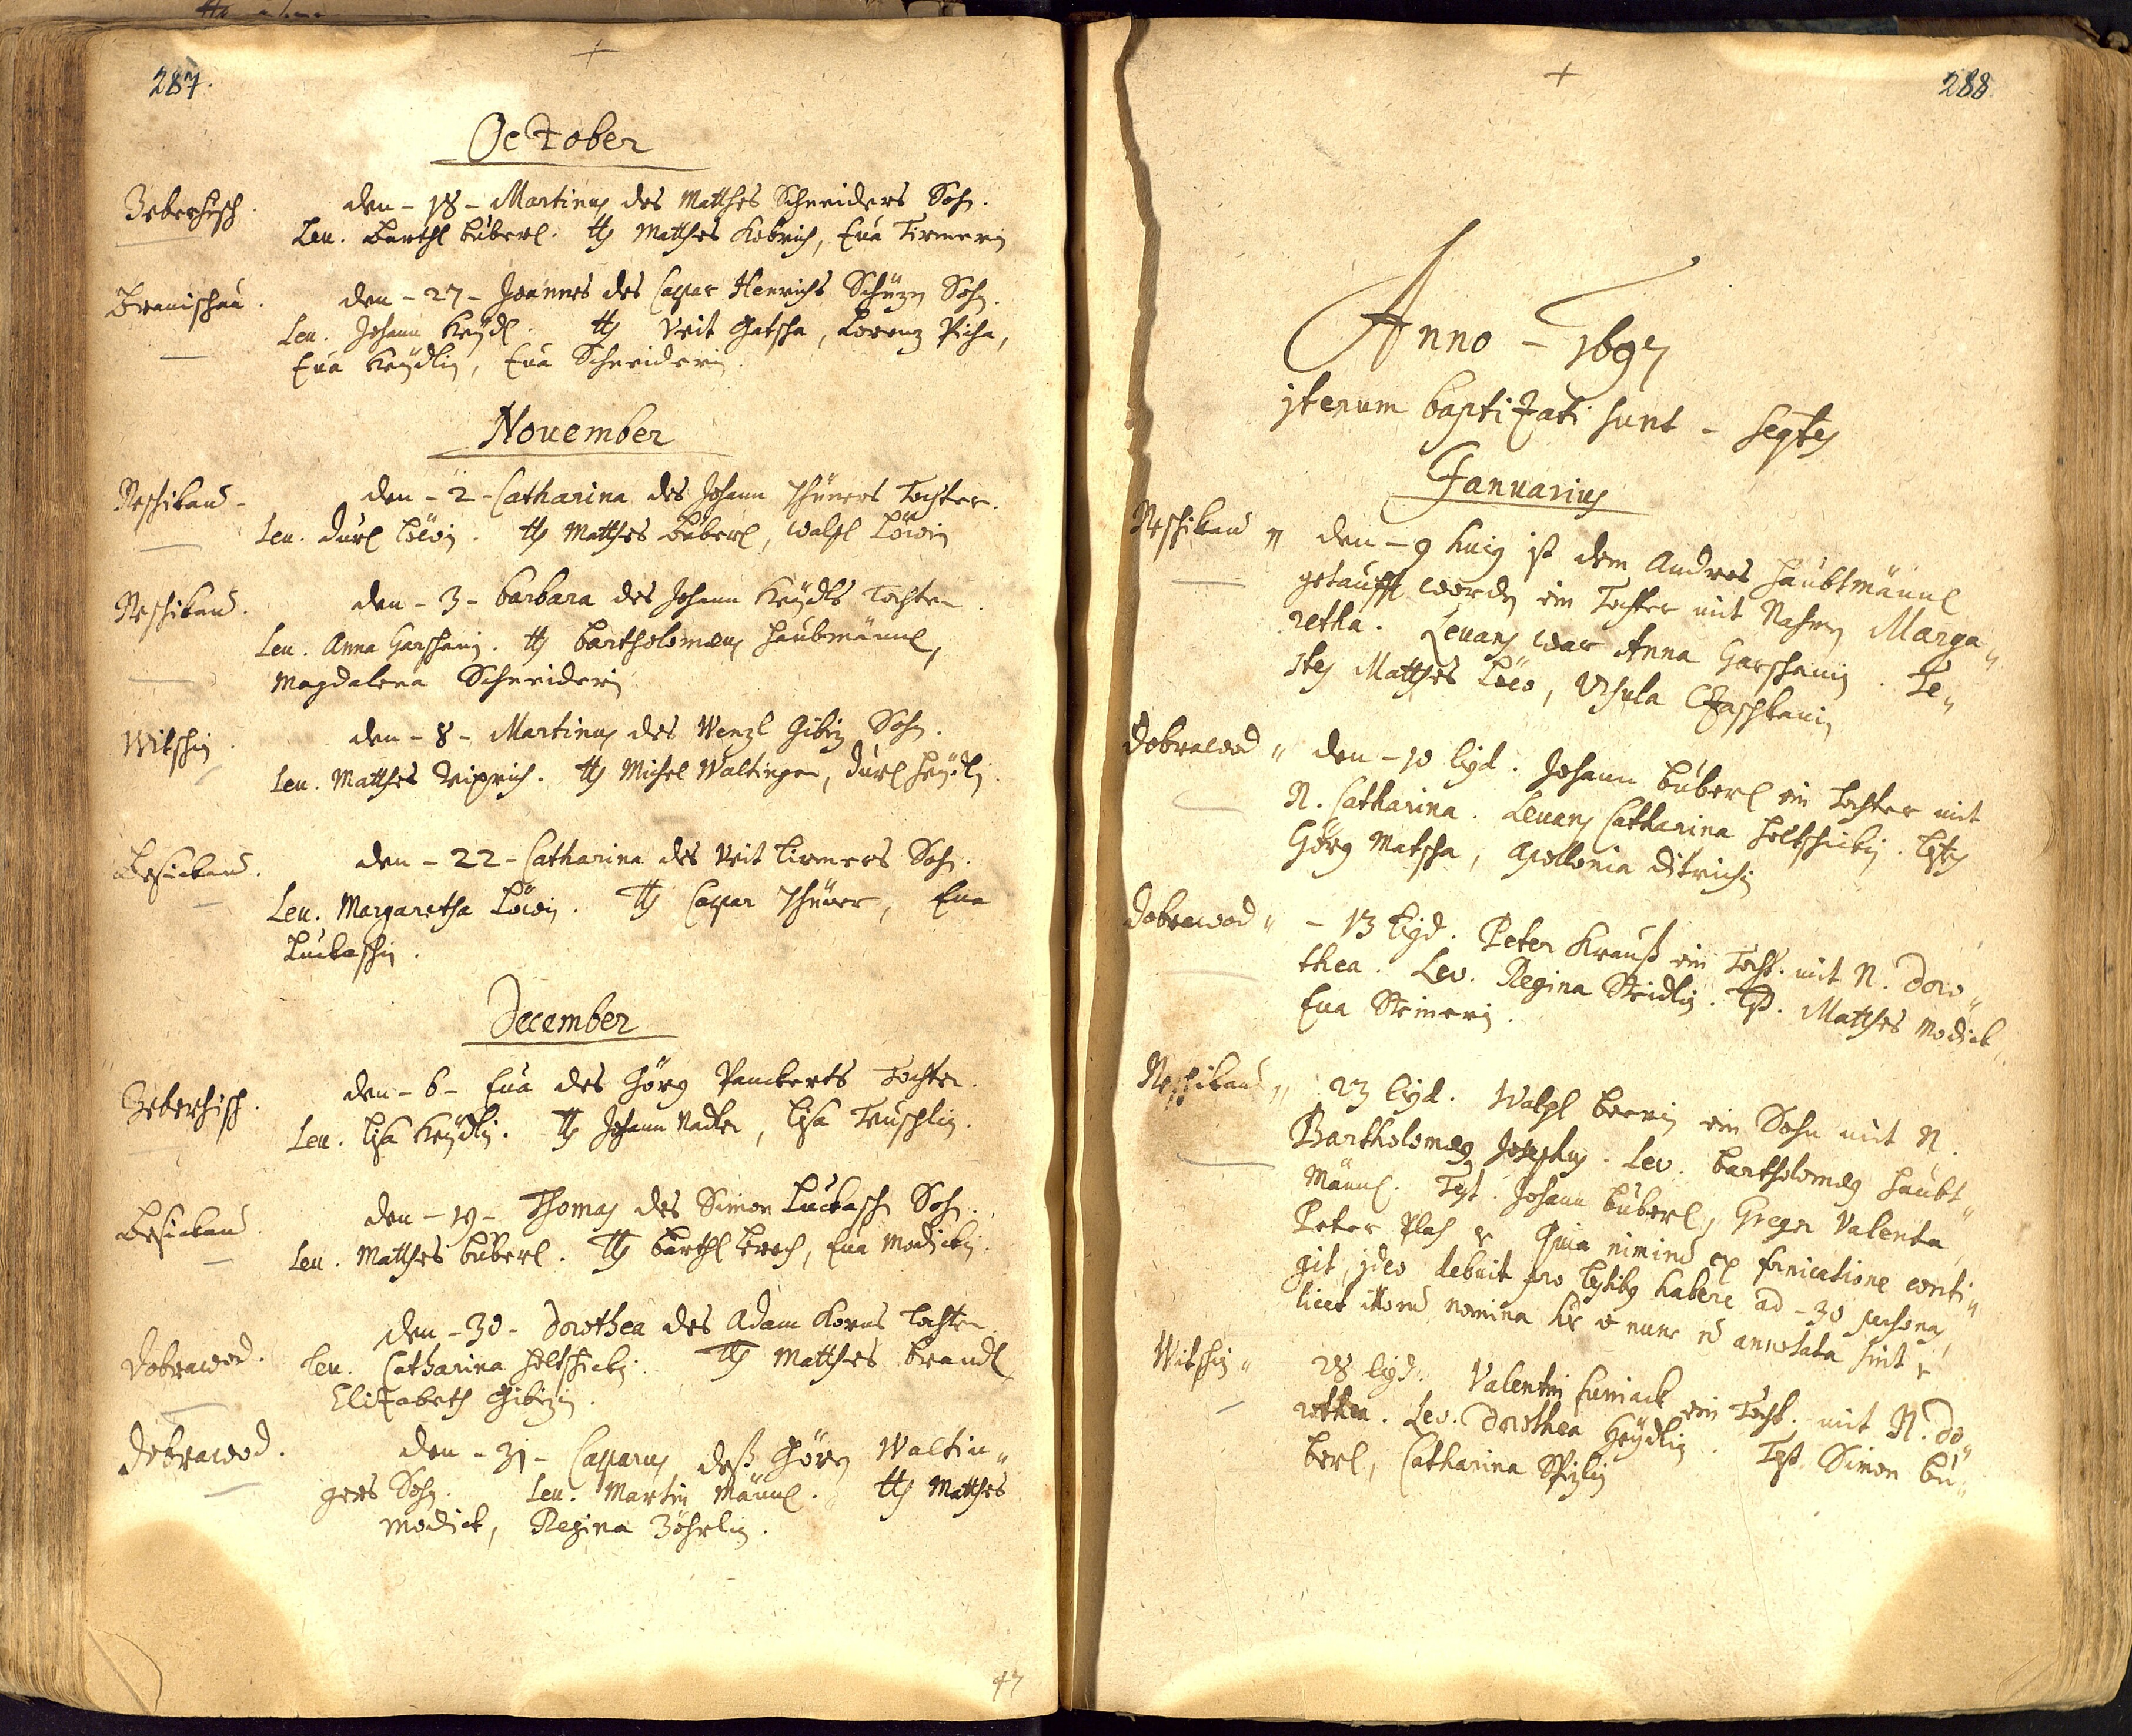 287.
October
Zeberhisch. den - 18 - Martinus des Matthes Schneiders Sohn.
Leu. Barthl Büberl. tts Matthes Kobrich, Eua Tirmerin
Branischau. den - 27 - Joannes des Caspar Henrichs Schüzn Sohn.
Leu. Johann Heÿdl. tts Veit Gatscha, Lorenz Picha,
Eua Heÿdlin, Eua Schneiderin.
Nouember
Neschikau - den - 2 - Catharina des Johann Thüners Tochter.
Leu. Durl Löwin. tts Matthes Büberl, Walpl Löwin
Neschikau. den - 3 - Barbara des Johann Heÿdls Tochter.
Leu. Anna Garschanin. tts Bartholomæus Haubmännl,
Magdalena Schneiderin
Witschin. den - 8 - Martinus des Wenzl Gibiz Sohn.
Leu. Matthes Diprich. tts Michel Waltinger, Durl Heÿdlin.
Besickau. den - 22 - Catharina des Veit Tirmers Sohn.
Leu. Margaretha Löwin. Tts Caspar Thüner, Eua
Luckaschin.
December
Zeberhisch. den - 6 - Eua des Görg Pankerts Tochter.
Leu. Lisa Heÿdlin. Tts Johann Nadler, Lisa Teuschlin.
Besickau. den - 19 - Thomas des Simon Luckasch Sohn.
Leu. Matthes Büberl. Tts Barthl Lerch, Eua Modickin.
Dobrawod. den - 30 - Dorothea des Adam Korns Tochter
Leu. Catharina Holtschickin. Tts Matthes Brandl
Elizabeth Gibizin.
Dobrawod. den - 31 - Casparus deß Görg Waltin„
gers Sohn. Leu. Martin Männl. tts Matthes
Modick, Regina Zöhrlin.
47
288.
Anno - 1697
jterum baptizati sunt - seqtes
Januarius
Neschikau „ den - 9 huig ist dem Andres Haubtmännl
getaufft wordn ein Tochter mit Nahmen Marga„
retha. Leuans war Anna Garschanin. Te„
stes Matthes Löw, Ursula Czaschkanin
Dobrawod „ den - 10 eijd. Johann Büberl ein Tochter mit
N. Catharina. Leuans Catharina Holtschickin. Tests
Görg Matscha, Apollonia Ditrichin
Dobrawod „ - 13 eijd. Peter Krauß ein Tocht. mit N. Doro„
thea. Lev. Regina Steidlin. Tst. Matthes Modick
Eua Steinerin.
Neschikau „ 23 eijd. Walpl Beerin ein Sohn mit N.
Bartholomæus Josephus. Lev. Bartholomæus Haubt„
Männl. Test. Johann Büberl, Gregor Valenta,
Peter Plas & Quia nimirū ex fornicatione conti„
git, jdeo debuit pro testibus habere ad - 30 personas,
licet illorū nomina hic & nunc nō annotata sint &
Witschin „ 28 eijd. Valentin Cuniack ein Tocht. mit N. Do„
rothea. Lev. Dorothea Heÿdlin. Test. Simon Bü„
berl, Catharina Spizlin